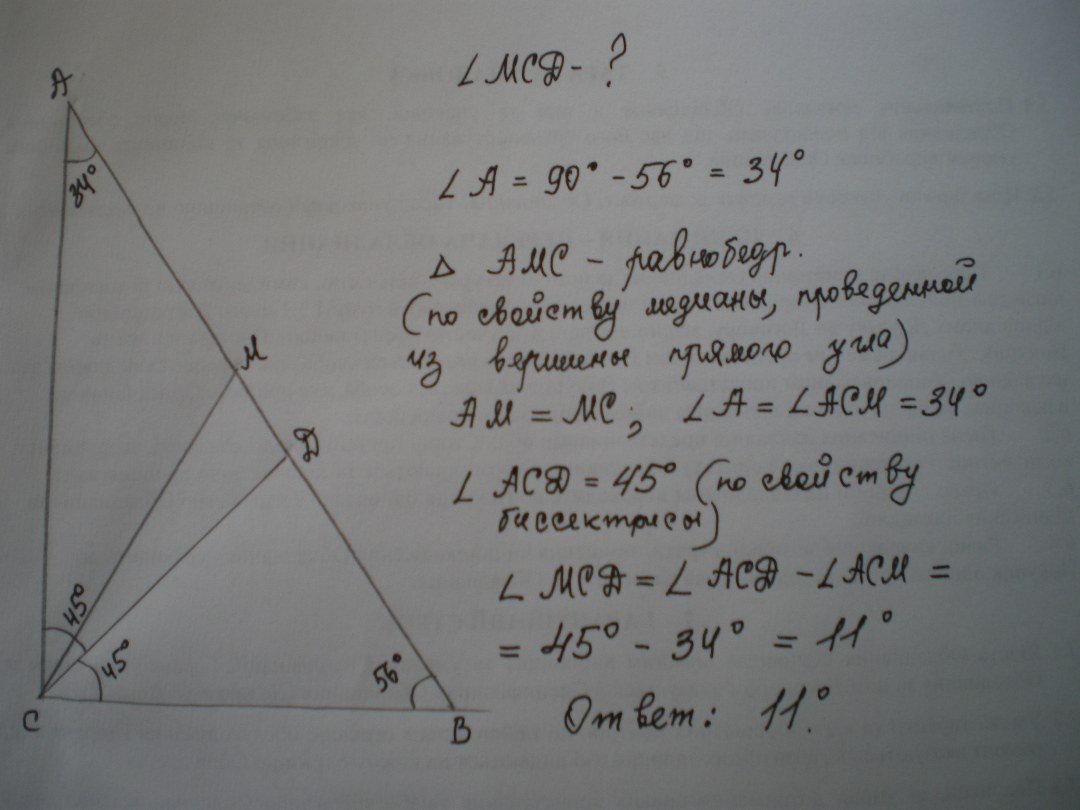 A
34°
M
D
45°
45°
56°
C
B
∠ MCD - ?
∠ A = 90° - 56° = 34°
Δ AMC - равнобедр.
(по свойству медианы, проведенной
из вершины прямого угла)
AM = MC; ∠ A = ∠ACM = 34°
∠ ACD = 45° (по свойству
биссектрисы)
∠ MCD = ∠ ACD - ∠ACM =
= 45° - 34° = 11°
Ответ: 11°.